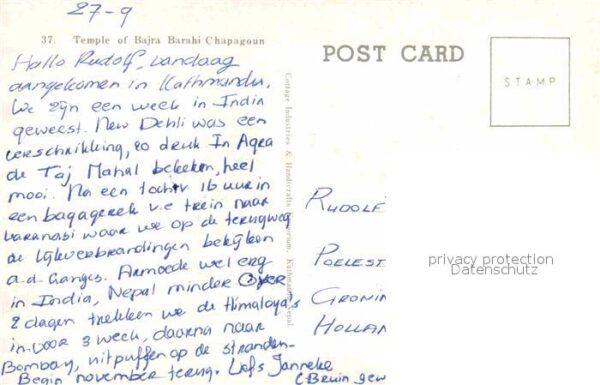 27-9
37. Temple of Bajra Barahi Chapagoun
Hallo Rudolf, vandaag
aangekomen in Kathmandu.
We zijn een week in India
geweest. New Dehli was een
verschrikking, zo druk. In Agra
de Taj Mahal bekeken, heel
mooi. Na een tocht v 16 uur in
een bagagerek v.e trein naar
Varanabi waar we op de terugweg
de lijkverbrandingen bekijken
a.d. Ganges. Armoede wel erg
in India, Nepal minder. Over
2 dagen trekken we de Himalaya's
in voor 3 week, daarna naar
Bombay, uitpuffen op de stranden.
Begin november terug. Liefs Janneke
(Bruin
Cottage Industries & Handicrafts Emporium, Kathmandu, Nepal.
POST CARD
STAMP
RUDOLF
POELEST
GRONIN
HOLLAN
privacy protection
Datenschutz